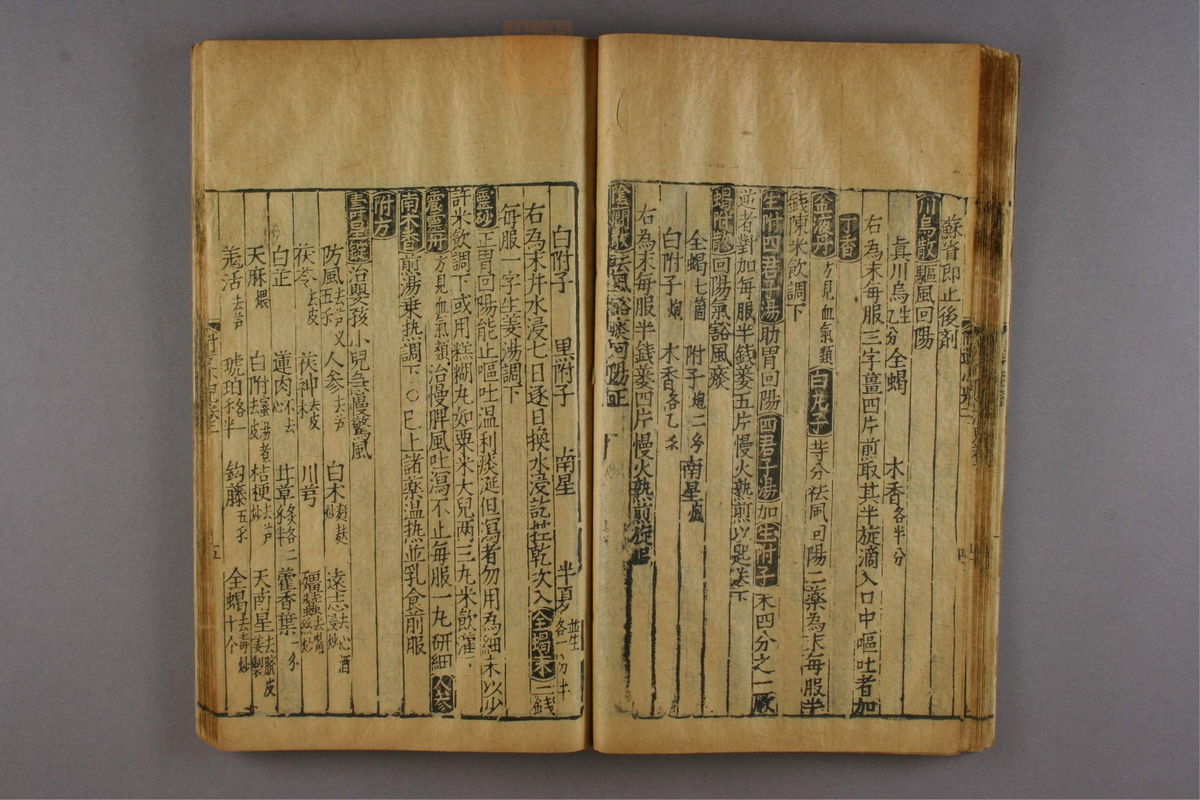 蘇省即止後劑
川烏散驅風回陽
真川烏生九分 全蝎 木香各半分
右為末每服三字薑四片煎取其半旋滴入口中嘔吐者加
丁香
金液丹方見血氣類 白丸子等分祛風回陽二藥為末每服半
錢陳米飲調下
生附四君子湯助胃回陽四君子湯加生附子末四分之一厥
逆者對加每服半錢姜五片慢火熟煎以匙送下
蝎附散回陽氣豁風痰
全蝎七箇 附子炮二分 南星炮
白附子炮 木香各乙分
右為末每服半錢姜四片慢火熟煎旋
陰癇散祛風豁痰回陽正
白附子 黒附子 南星 半夏並生各一分半
右為末井水浸七日逐日換水浸訖控乾次入全蝎末二錢
每服一字生姜湯調下
靈砂正胃回陽能止嘔吐温利痰延但瀉者勿用為細末以少
許米飲調下或用糕糊丸如粟米大兒両三丸米飲灌下
震靈丹方見血氣類治慢脾風吐瀉不止每服一丸研細人參
南木香煎湯乗热調下○已上諸藥温热並乳食前服
附方
治嬰孩小兒急慢驚風
防風去芦叉五分 人參去芦 白朮麸炒 遠志去心酒浸炒
茯苓去皮 茯神去木 川芎 殭蠶去嘴絲炒
白芷 蓮肉不去心 甘草炙各二分半 藿香葉一分
天麻煨 白附去皮 桔梗去芦炒 天南星去臍皮姜製
羌活去芦 琥珀各一分半 鈎藤五分 全蝎去毒炒十个
五